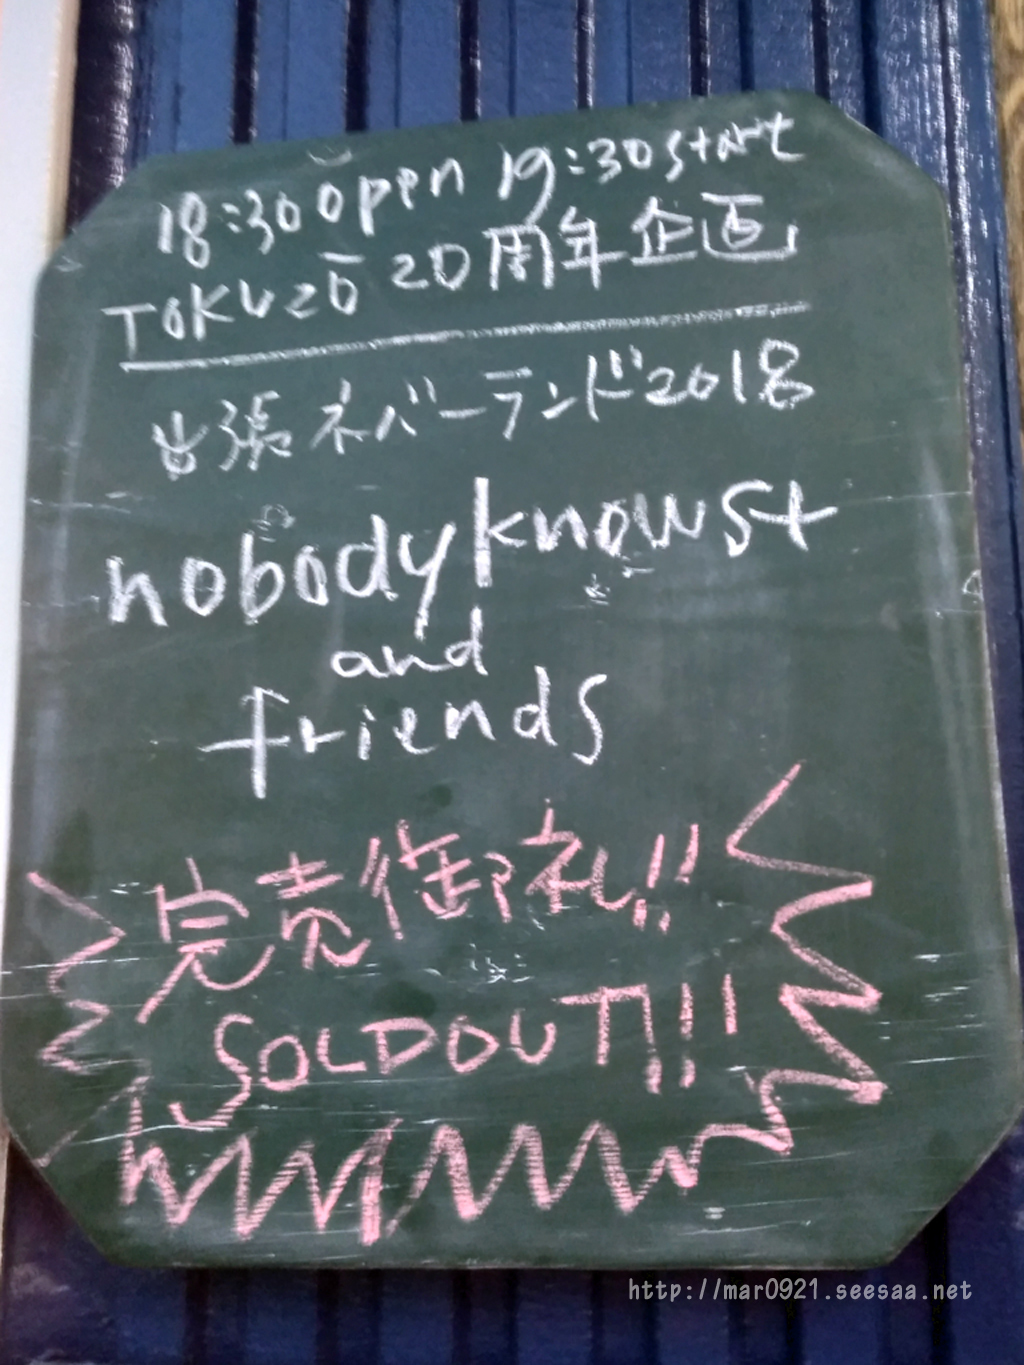 18:30 open 19:30 start
TOKUZO 20周年企画
出張ネバーランド2018
nobodyknows+
and
friends
完売御礼!!
SOLDOUT!!
http://mar0921.seesaa.net